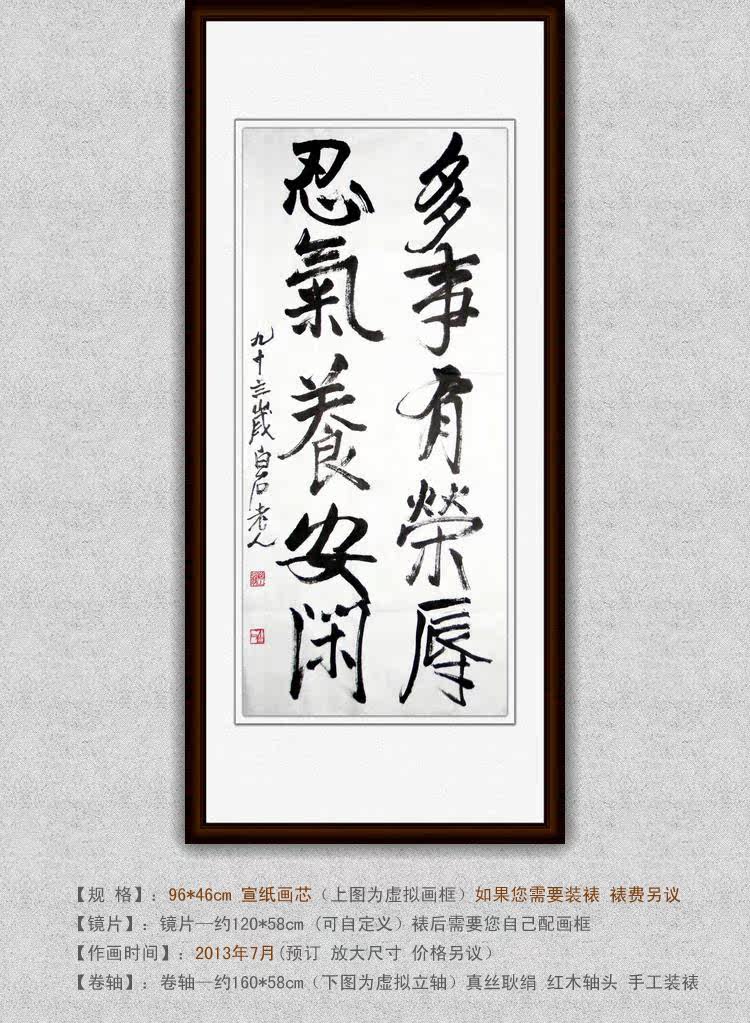 多事有榮辱
忍氣養安閑
九十三歲白石老人
【规 格】：96*46cm 宣纸画芯（上图为虚拟画框）如果您需要装裱 裱费另议
【镜片】：镜片—约120*58cm (可自定义）裱后需要您自己配画框
【作画时间】：2013年7月(预订 放大尺寸 价格另议）
【卷轴】：卷轴—约160*58cm（下图为虚拟立轴）真丝耿绢 红木轴头 手工装裱